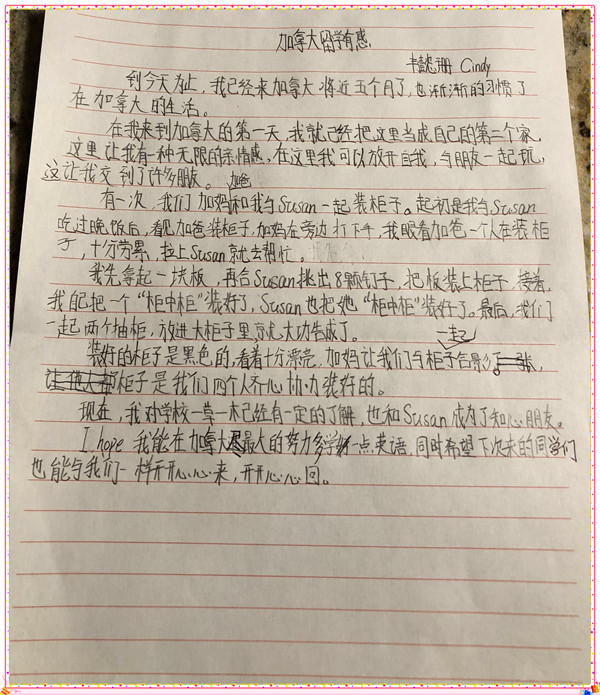 加拿大留学有感
韦懿珊 Cindy
到今天为止，我已经来加拿大将近五个月了，也渐渐的习惯了
在加拿大的生活。
在我来到加拿大的第一天，我就已经把这里当成自己的第二个家，
这里让我有一种无限的亲情感，在这里我可以放开自我，与朋友一起玩，
这让我交到了许多朋友。
加爸
有一次，我们加妈和我与Susan一起装柜子。起初是我与Susan
吃过晚饭后，看见加爸装柜子，加妈在旁边打下手，我眼看加爸一个人在装柜
子，十分劳累，拉上Susan就去帮忙。
我先拿起一块板，再合Susan挑出8颗钉子，把板装上柜子，接着，
我自己把一个“柜中柜”装好了，Susan也把她“柜中柜”装好了。最后，我们
一起两个抽柜，放进大柜子里就大功告成了。
一起
装好的柜子是黑色的，看着十分漂亮，加妈让我们与柜子合影了一张，
柜子是我们四个人齐心协力装好的。
现在，我对学校一草一木已经有一定的了解，也和Susan成为了知心朋友。
I hope 我能在加拿大尽最大的努力多学一点英语，同时希望下次来的同学们
也能与我们一样开开心心来，开开心心回。